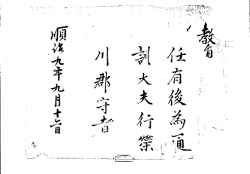 教旨
任有後為通
訓大夫行榮
川郡守者
順治九年九月十二日